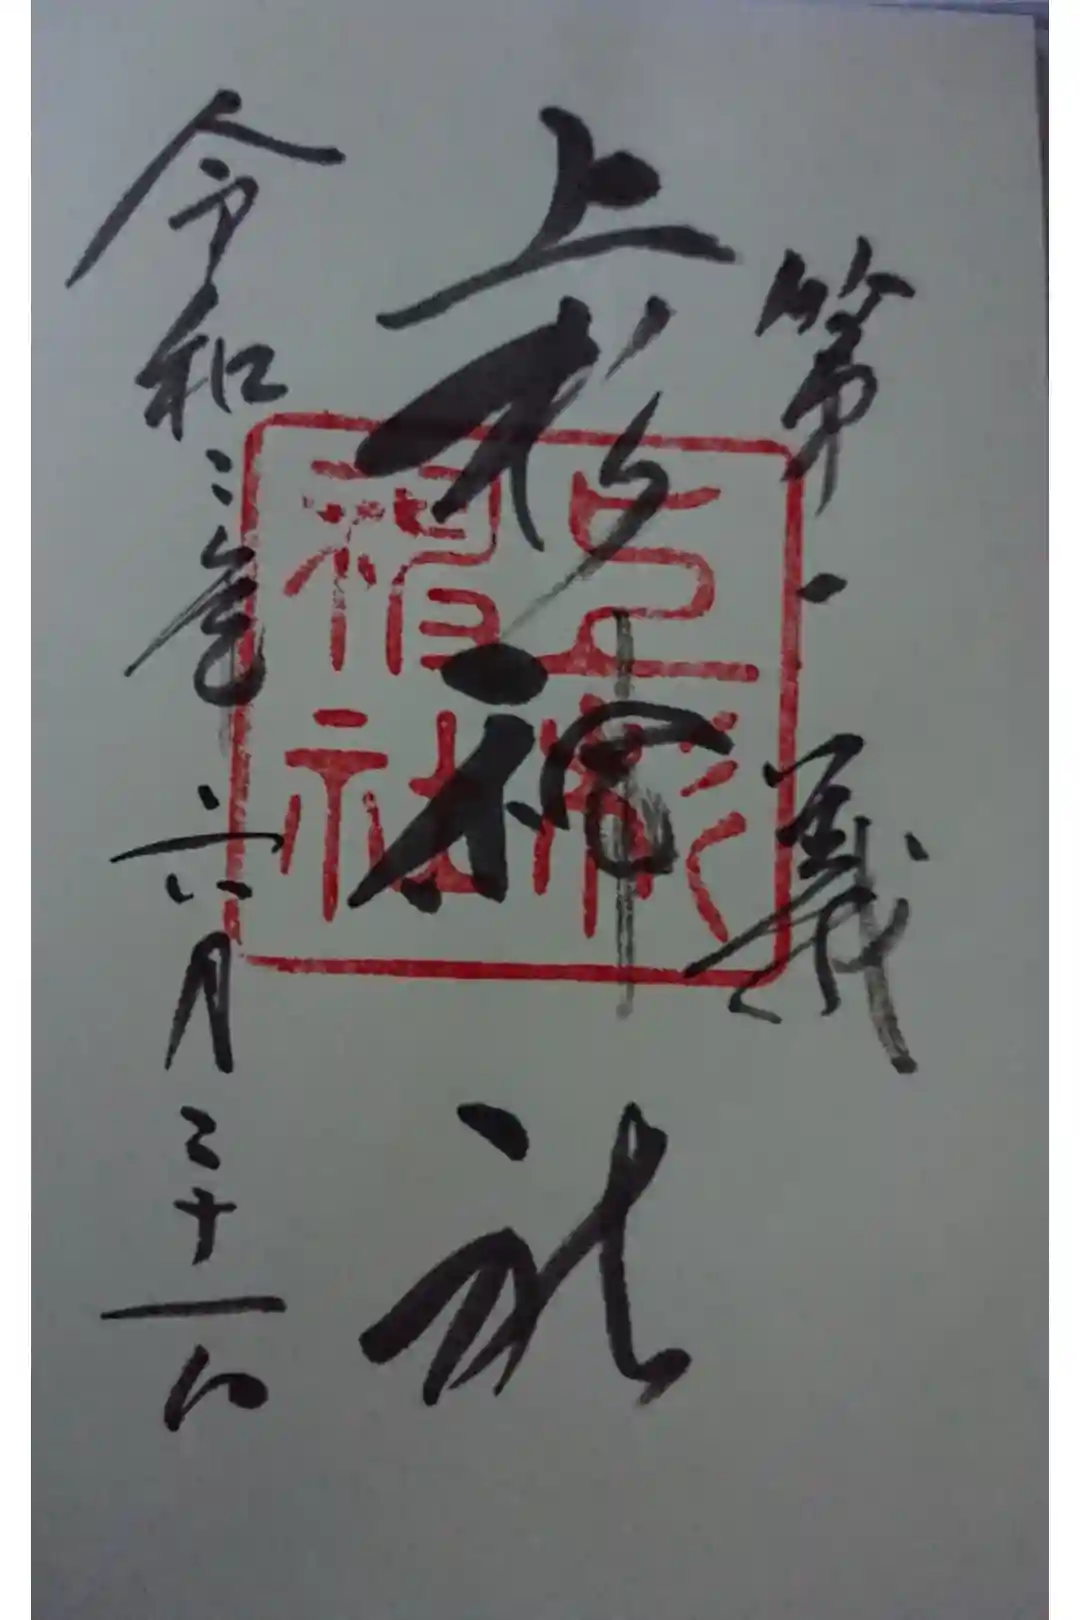 第一義
上杉神社
令和二年六月二十一日
上杉
神社